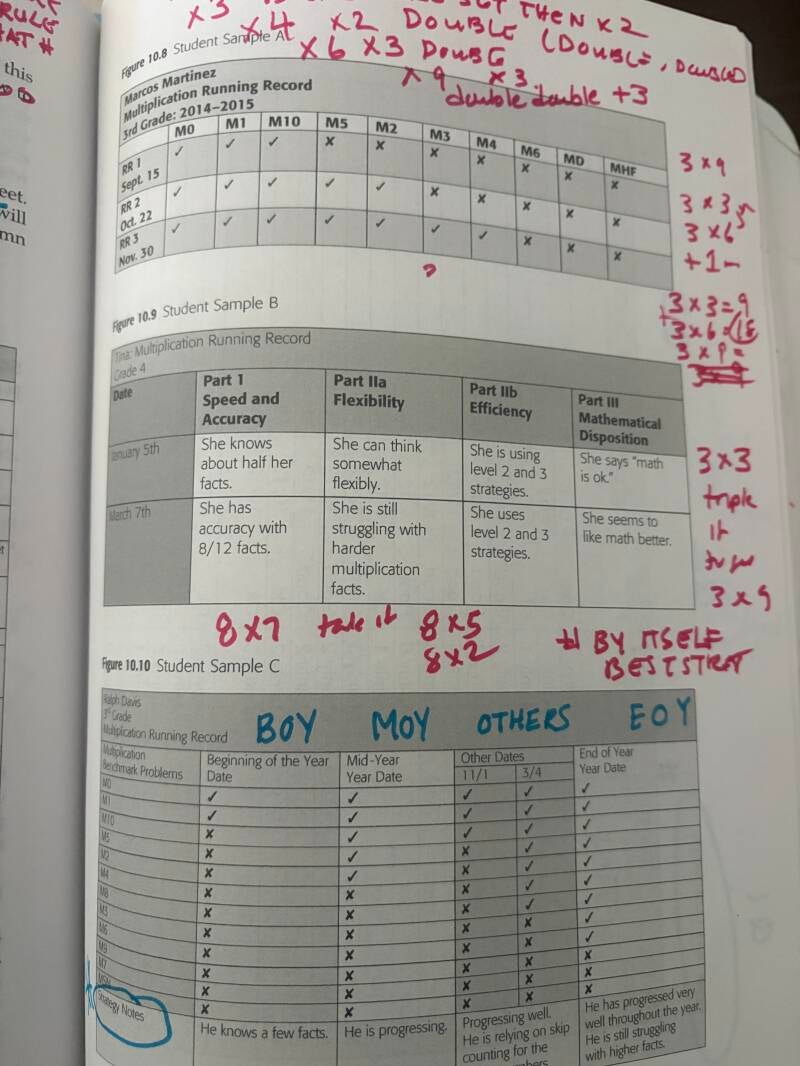 RULE
THAT #
this
eet.
will
mn
x3
THEN x2
x4 x2 DOUBLE (DOUBLE, DOUBLE)
x6 x3 DOUBG
x9 x3
double double +3
Figure 10.8 Student Sample A
Marcos Martinez
Multiplication Running Record
3rd Grade: 2014–2015
M0 M1 M10 M5 M2 M3 M4 M6 MD MHF
RR 1 Sept. 15 ✓ ✓ ✓ ✗ ✗ ✗ ✗ ✗ ✗ ✗
RR 2 Oct. 22 ✓ ✓ ✓ ✓ ✓ ✗ ✗ ✗ ✗ ✗
RR 3 Nov. 30 ✓ ✓ ✓ ✓ ✓ ✓ ✓ ✗ ✗ ✗
3 x 9
3 x 3
3 x 6
+1-
Figure 10.9 Student Sample B
3 x 3 = 9
+ 3 x 6 = 18
3 x 9 =
Tina: Multiplication Running Record
Grade 4
Date
Part 1 Speed and Accuracy
Part IIa Flexibility
Part IIb Efficiency
Part III Mathematical Disposition
January 5th
She knows about half her facts.
She can think somewhat flexibly.
She is using level 2 and 3 strategies.
She says "math is ok."
March 7th
She has accuracy with 8/12 facts.
She is still struggling with harder multiplication facts.
She uses level 2 and 3 strategies.
She seems to like math better.
3x3
triple
it
3 x 9
8x7 take it 8x5
8x2
# BY ITSELF
BEST STRAT
Figure 10.10 Student Sample C
Ralph Davis
3rd Grade
Multiplication Running Record
BOY MOY OTHERS EOY
Multiplication Benchmark Problems
Beginning of the Year Date
Mid-Year Year Date
Other Dates
11/1 3/4
End of Year Year Date
M0 ✓ ✓ ✓ ✓ ✓
M1 ✓ ✓ ✓ ✓ ✓
M10 ✗ ✓ ✓ ✓ ✓
M5 ✗ ✓ ✗ ✓ ✓
M2 ✗ ✓ ✗ ✓ ✓
M4 ✗ ✗ ✗ ✓ ✓
M8 ✗ ✗ ✗ ✓ ✓
M3 ✗ ✗ ✗ ✗ ✓
M6 ✗ ✗ ✗ ✗ ✓
M9 ✗ ✗ ✗ ✗ ✗
M7 ✗ ✗ ✗ ✗ ✗
✗ ✗ ✗ ✗ ✗
Strategy Notes
He knows a few facts.
He is progressing.
Progressing well. He is relying on skip counting for the
He has progressed very well throughout the year. He is still struggling with higher facts.